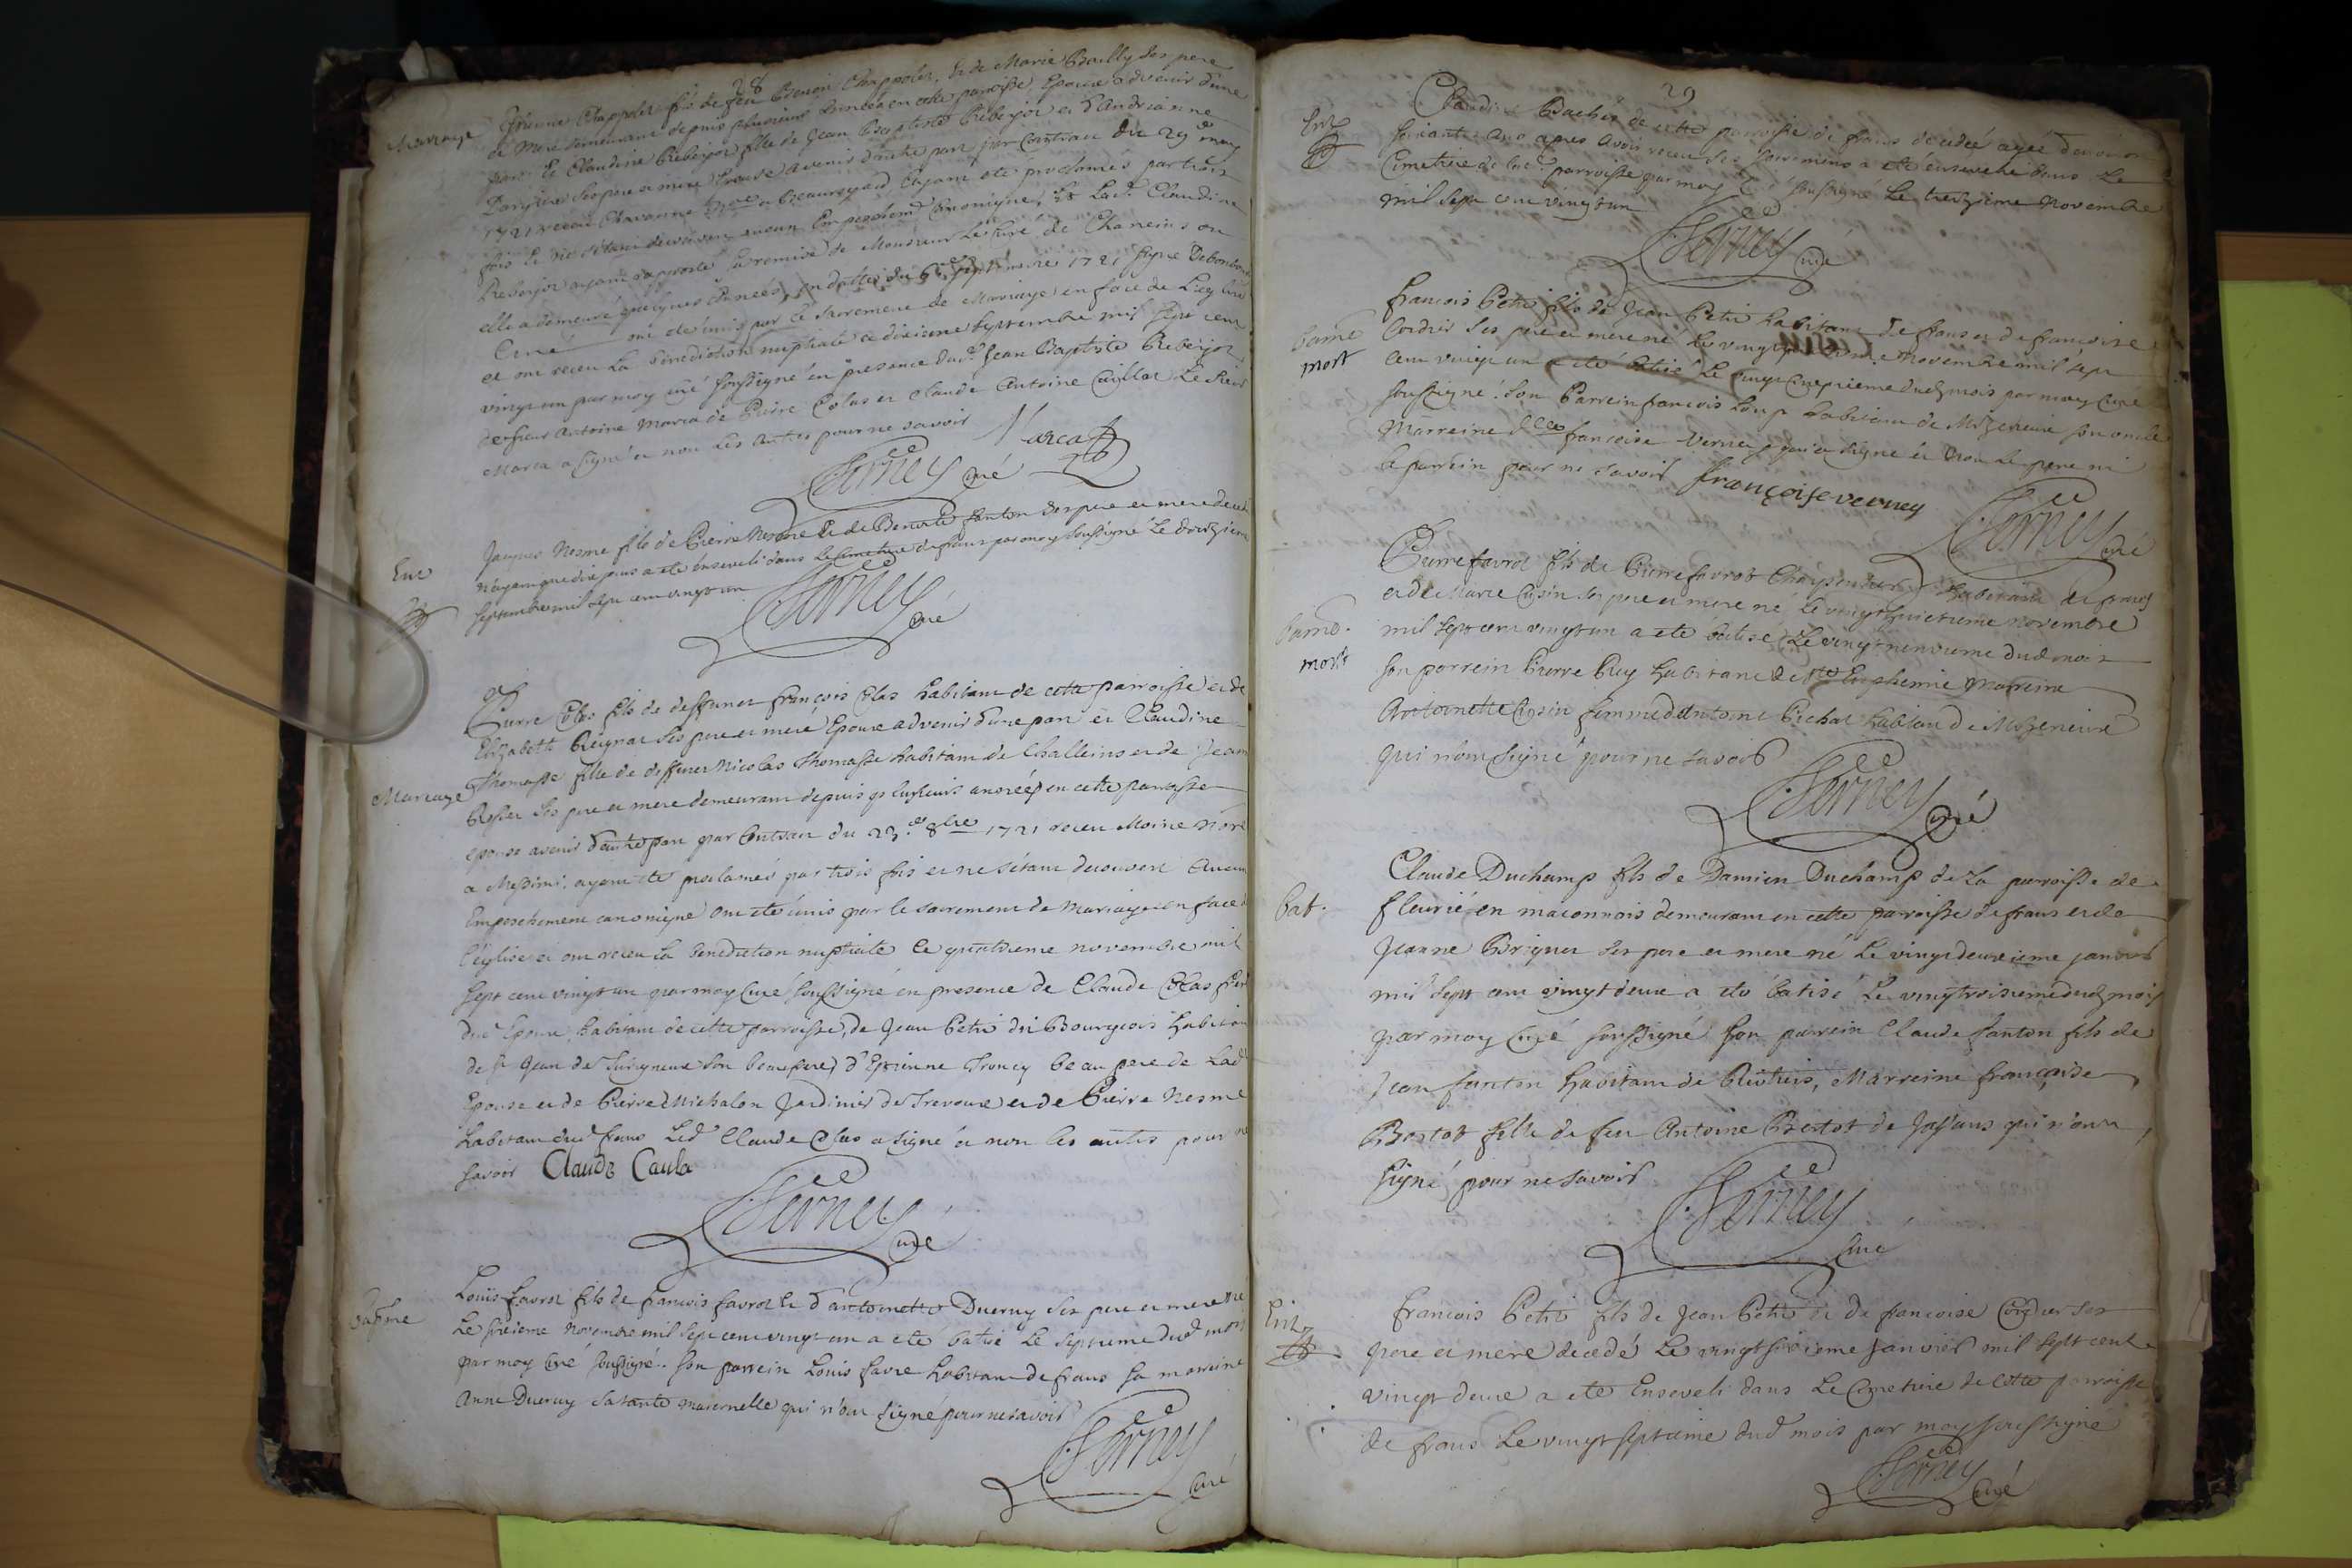 28
Mariage
Etienne Chappolet fils de feu Benoit Chappolet, Et de Marie Bailly ses pere
et Mere demeurant depuis plusieurs années en cette paroisse, Epoux advenir d'une
part Et Claudine Reberjot fille de Jean Baptiste Reberjot et d'Andrianne
ses pere et mere Epouse avenir d'autre part par contrat du 29 may
1721 receu Chavanne a Beauregard Ayant été proclamés par trois
fois Et ne s'étant decouvert aucun Empeschemt Canonique, Et Lad. Claudine
Reberjot ayant rapporté la remise de Monsieur Le Curé de Chaneins ou
elle a demeuré quelques années, en datte du septembre 1721 signé
Curé ont été unis par le Sacrement de Mariage en face de L'eglise
et ont receu La Benediction nuptiale ce dixieme septembre mil sept cent
vingt un par moy curé soussigné en presence dud. Jean Baptiste Reberjot
de sieur Antoine Marca de Pierre Colas et Claude Antoine Caillat Le Sieur
Marca a signé et non les autres pour ne savoir Marca
Verney Curé
Ent
Jacques Nesme fils de Pierre Nesme Et de Benoite fanton ses pere et mere decedé
n'ayant que dix jours a eté enseveli dans Le Cimetiere de frans par moy soussigné Le douzieme
septembre mil sept cent vingt un
Verney Curé
Mariage
Pierre Colas fils de deffunct françois Colas habitant de cette parroisse et de
Elizabeth Reignat ses pere et mere Epoux advenir d'une part et Claudine
Thomasse fille de deffunct Nicolas Thomasse habitant de Challeins et de Jeanne
Rosset ses pere et mere demeurant depuis plusieurs années en cette parroisse
epouse avenir d'autre part par Contract du 23e 8bre 1721 receu Moine Nore
a Messimi, ayant eté proclamés par trois fois et ne s'étant decouvert Aucun
Empeschement canonique ont eté unis par le sacrement de Mariage en face de
l'église et ont receu La benediction nuptiale le quatrieme novembre mil
sept cent vingt un par moy Curé soussigné en presence de Claude Colas frere
dud Epoux, habitant de cette parroisse, de Jean Petit dit Bourgeois habitant
de St Jean de Turigneux son beaufrere, d'Estienne Troncy beau pere de Lad
Epouse et de Pierre Michalon Jardinier de Trevoux et de Pierre Nesme
habitant dud frans Led Claude Colas a signé et non les autres pour ne
savoir Claude Caula
Verney Curé
Louis favrot fils de francois favrot Et d'antoinette Ducruy ses pere et mere né
Le sixieme novembre mil sept cent vingt un a eté batisé Le septieme dud mois
par moy Curé soussigné. son parrein Louis favre habitant de frans sa marreine
Anne Ducruy sa tante maternelle qui n'ont signé pour ne savoir
Verney Curé
29
Ent
Claudine de cette parroisse de frans decedée agée d'environ
soixante ans apres avoir receu les sacremens a eté ensevelie dans Le
Cimetiere de lad. parroisse par moy Curé soussigné Le treizieme Novembre
mil sept cent vingt un
Verney Curé
mort
francois Petit fils de Jean Petit habitant de frans et de françoise
Cordier ses pere et mere né Le vingt novembre mil sept
cent vingt un a eté batisé Le vingt dud mois par moy Curé
soussigné. Son Parrein francois Loup habitant de Mizerieux son oncle
Marreine dlle françoise Verney qui a signé et non Le pere ni
le parrein pour ne savoir françoise verney
Verney Curé
mort
Pierre favrot fils de Pierre favrot Charpentier habitant de frans
et de Marie Cosin ses pere et mere né Le vingt huictieme novembre
mil sept cent vingt un a eté batisé Le vingt neuvieme dud mois
son parrein Pierre Puy habitant de Ste Euphemie Marreine
Antoinette Cosin femme d'Antoine Pichat habitant de Mizerieux
qui n'ont signé pour ne savoir
Verney Curé
bat.
Claude Duchamp fils de Damien Duchamp de La parroisse de
fleurié en maconnois demeurant en cette parroisse de frans et de
Jeanne Briquet ses pere et mere né Le vingt deuxieme janvier
mil sept cent vingt deux a eté batisé Le vingt troisieme dud mois
par moy Curé soussigné Son parrein Claude fanton fils de
Jean fanton habitant de Riotiers, Marreine françoise
Bertot fille de feu Antoine Bertot de Jassans qui n'ont
signé pour ne savoir
Verney Curé
Ent
francois Petit fils de Jean Petit et de francoise Cordier ses
pere et mere decedé Le vingt sixieme Janvier mil sept cent
vingt deux a eté Enseveli dans Le Cimetiere de Cette parroisse
de frans Le vingt septieme dud mois par moy soussigné
Verney Curé